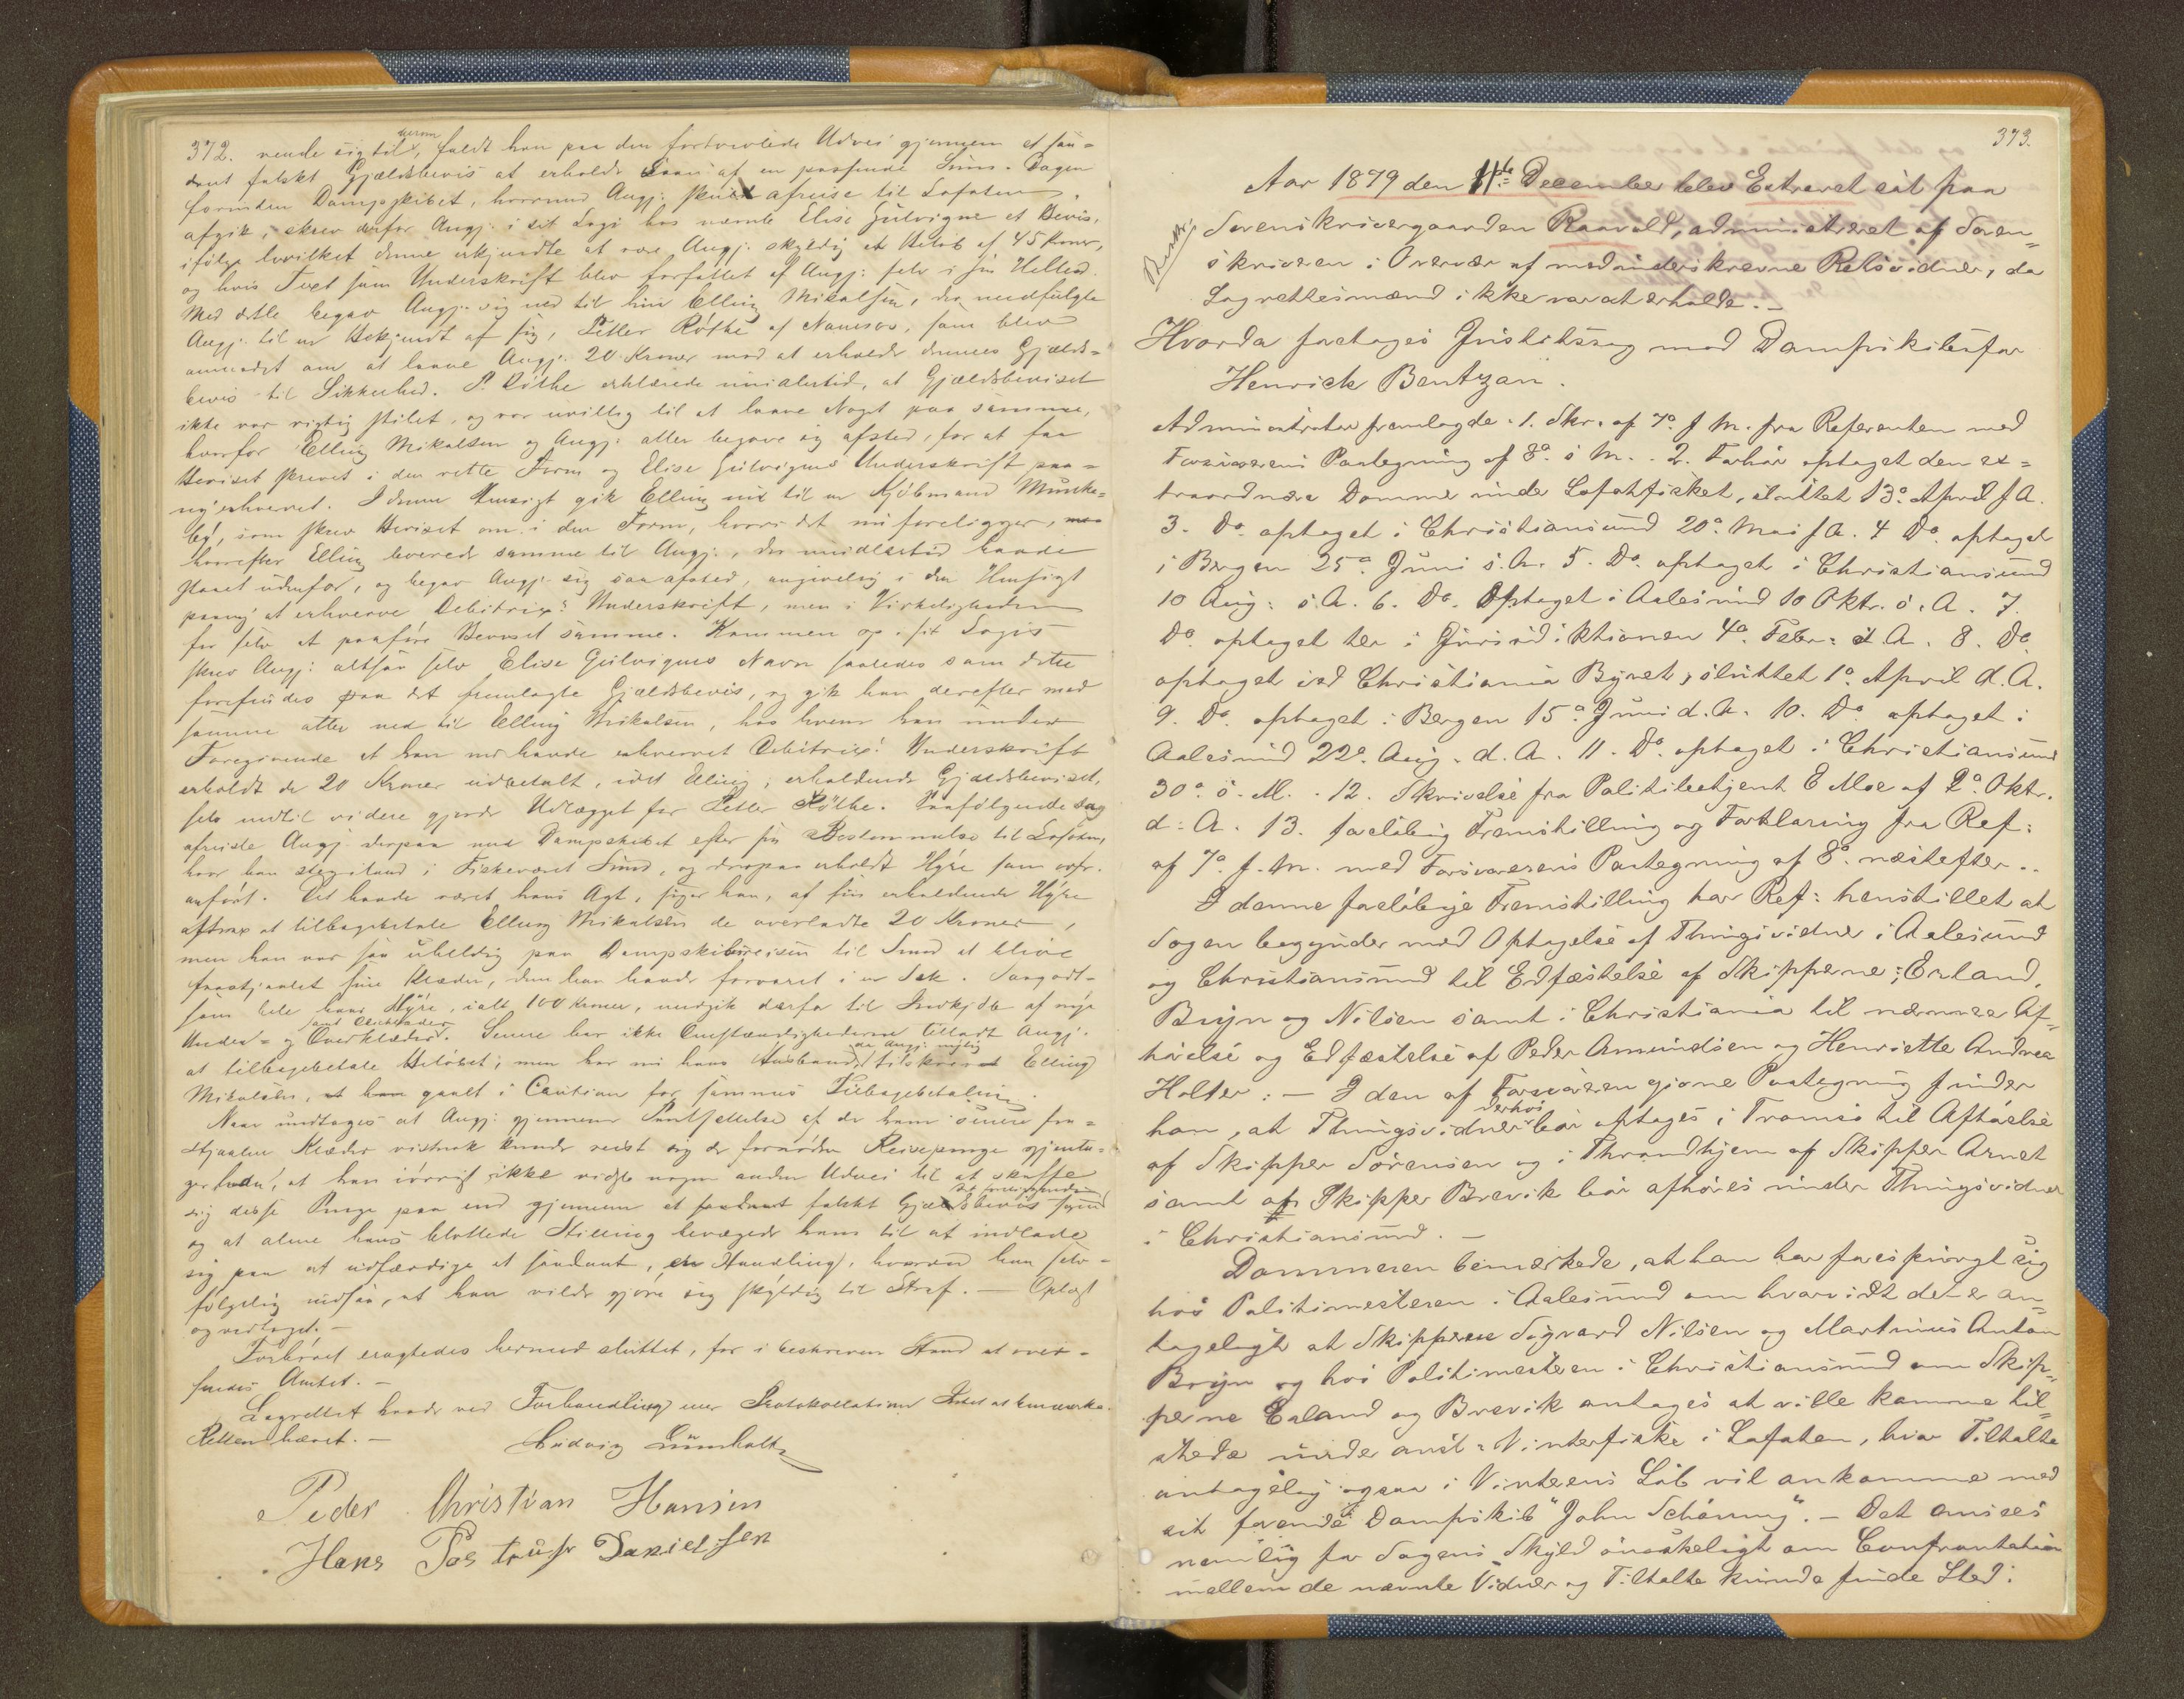 372. vende sig til herom, faldt han paa den fortvivlede Udvei gjennem et saa-
dant falskt Gjældsbevis at erholde Laan af en passende Sum. Dagen
forinden Dampskibet, hvormed Angj: skulde afreise til Lofoten
afgik, skrev derfor Angj: i sit Logi hos nævnte Elise Gulvigne et Bevis,
ifølge hvilket denne erkjendte at være Angj: skyldig et Beløb af 45 Kroner,
og hvis Text som Underskrift blev forfattet af Angj: selv i sin Helhed.
Med dette begav Angj: sig ned til hin Elling Mikalsen, der medfulgte
Angj: til en Bekjendt af sig, Petter Røthe af Namsos, som blev
anmodet om at laane Angj: 20 Kroner mod at erholde dennes Gjælds-
bevis til Sikkerhed. P. Røthe erklærede imidlertid, at Gjældsbeviset
ikke var rigtig stilet, og var uvillig til at laane Noget paa samme,
hvorfor Elling Mikalsen og Angj: atter begave sig afsted, for at faa
Beviset skrevet i den rette Form og Elise Gulvignes Underskrift paa-
ny erhvervet. I denne Hensigt gik Elling ind til en Kjøbmand
som skrev Beviset om i den Form, hvori det nu foreligger,
hvorefter Elling leverede samme til Angj:, der imidlertid havde
staaet udenfor, og begav Angj: sig saa afsted, angivelig i den Hensigt
paany at erhverve Debitrix's Underskrift, men i Virkeligheden
for selv at paaføre Beviset samme. Kommen op i sit Logis
skrev Angj: altsaa selv Elise Gulvignes Navn saaledes som dette
forefindes paa det fremlagte Gjældsbevis, og gik han derefter med
samme atter ned til Elling Mikalsen, hos hvem han under
Foregivende at han nu havde erhvervet Debitrix's Underskrift
erholdt de 20 Kroner udbetalt, idet Elling, erholdende Gjældsbeviset,
selv indtil videre gjorde Udlægget for Petter Røthe. Paafølgende Dag
afreiste Angj: derpaa med Dampskibet efter sin Bestemmelse til Lofoten,
hvor han steg iland i Fiskeværet Sund, og derpaa erholdt Hyre som ovfr.
anført. Det havde været hans Agt, siger han, af sin erholdende Hyre
at tilbagebetale Elling Mikalsen de overladte 20 Kroner,
men han var saa uheldig paa Dampskibsreisen til Sund at blive
frastjaalet sine Klæder, dem han havde forvaret i en Sæk. Saagodt-
som hele hans Hyre, ialt 100 Kroner, medgik derfor til Indkjøb af nye
Under- og Overklæder. Senere har ikke Omstændighederne tilladt Angj:
at tilbagebetale Beløbet; men har nu hans Husbond, da Angj: nylig tilskrev Elling
Mikalsen, gaaet i Caution for sammes Tilbagebetaling.
Naar undtages at Angj: gjennem Pantsættelse af de ham senere fra-
stjaalne Klæder vistnok kunde redet sig de fornødne Reisepenge gjenta-
ger han, at han iøvrigt ikke vidste nogen anden Udvei til at skaffe
sig disse Penge paa end gjennem et falskt Gjældsbevis
og at alene hans blottede Stilling bevægede ham til at indlade
sig paa at udfærdige et saadant, en Handling, hvorved han selv-
følgelig indsaa, at han vilde gjøre sig skyldig til Straf. — Oplæst
og vedtaget. —
Forhøret eragtedes hermed sluttet, for i beskreven Stand at over-
sendes Amtet. —
Lagrettet havde ved Forhandling eller Protokollation Intet at bemærke.
Retten hævet. —
Ludvig Lumholtz
Peder Christian Hansen
Hans Danielsen
373.
Aar 1879 den 11te December blev Extraret sat paa
Sorenskrivergaarden Raavold, administreret af Soren-
skriveren i Overvær af medunderskrevne Retsvidner, da
Lagrettesmænd ikke var at erholde. —
Hvorda foretoges Justitssag mod Dampskibsfør
Henrick Bentzon.
Administrator fremlagde. 1. Skr. af 7de f. M. fra Referenten med
Forsvarerens Paategning af 8de s. M. . 2. Forhør optaget den ex-
traordinære Dommer under Lofotfisket, sluttet 13de April f A.
3. Do. optaget i Christiansund 20de Mai f A. 4 Do. optaget
i Bergen 25de Juni s. A. 5. Do. optaget i Christiansund
10 Aug: s. A. 6. Do. Optaget i Aalesund 10 Oktr. s. A. 7.
Do. optaget her i Jurisdiktionen 4de Febr: d A. 8. Do.
optaget ved Christiania Byret, sluttet 1ste April d. A.
9. Do. optaget i Bergen 15de Juni d. A. 10. Do optaget i
Aalesund 22de Aug. d. A. 11. Do. optaget i Christiansund
30de s. M. . 12. Skrivelse fra Politibetjent E Moe af 2de Oktr.
d. A. 13. foreløbig Fremstilling og Forklaring fra Ref:
af 7de f. M. med Forsvarerens Paategning af 8de næstefter..
I denne foreløbige Fremstilling har Ref: henstillet at
Sagen begynder med Optagelse af Thingsvidne i Aalesund
og Christiansund til Edfæstelse af Skipperne: Erland,
Bryn og Nilsen samt i Christiania til nærmere Af-
hørelse og Edfæstelse af Peder Amundsen og Henriette Andrea
Holter. — I den af Forsvareren gjorne Paategning finder
han, at Thingsvidner derhos bør optages i Tromsø til Afhørelse
af Skipper Sørensen og i Throndhjem af Skipper Arnet
samt at Skipper Brevik bør afhøres under Thingsvidnet
i Christiansund. —
Dommeren bemærkede, at han har forespurgt sig
hos Politimesteren i Aalesund om hvorvidt det er an-
tageligt at Skipperne Sigvard Nilsen og Martinus Anton
Bryn og hos Politimesteren i Christiansund om Skip-
perne Erland og Brevik antages at ville komme til-
stede under anst: Vinterfiske i Lofoten, hvor Tiltalte
antagelig ogsaa i Vinterens Løb vil ankomme med
sit førende Dampskib "John Schøning". — Det ansees
nemlig for Sagens Skyld ønskeligt om Confrontation
mellem de nævnte Vidner og Tiltalte kunde finde Sted.